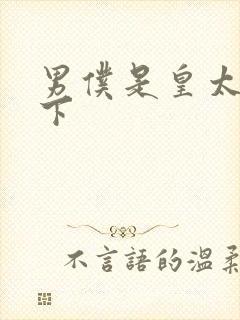 男僕是皇太
下
不言語的溫柔